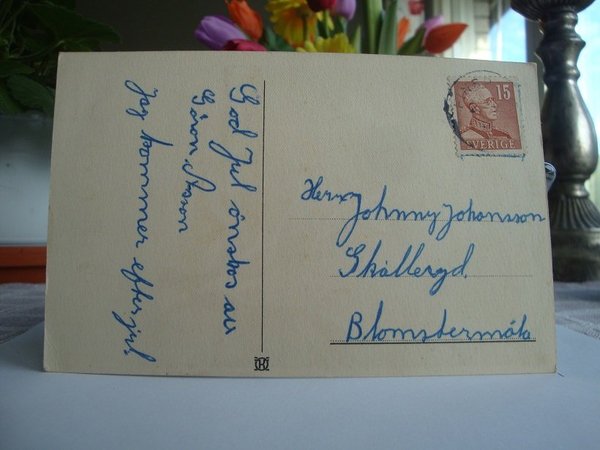 God Jul önskas av
Göran
Jag kommer efter jul.
15
SVERIGE
Herr Johnny Johansson
Skälleryd.
Blomstermåla